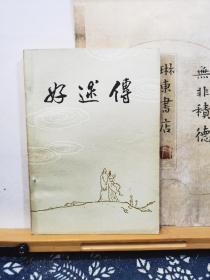 好逑傳
琳東書店
無非積德